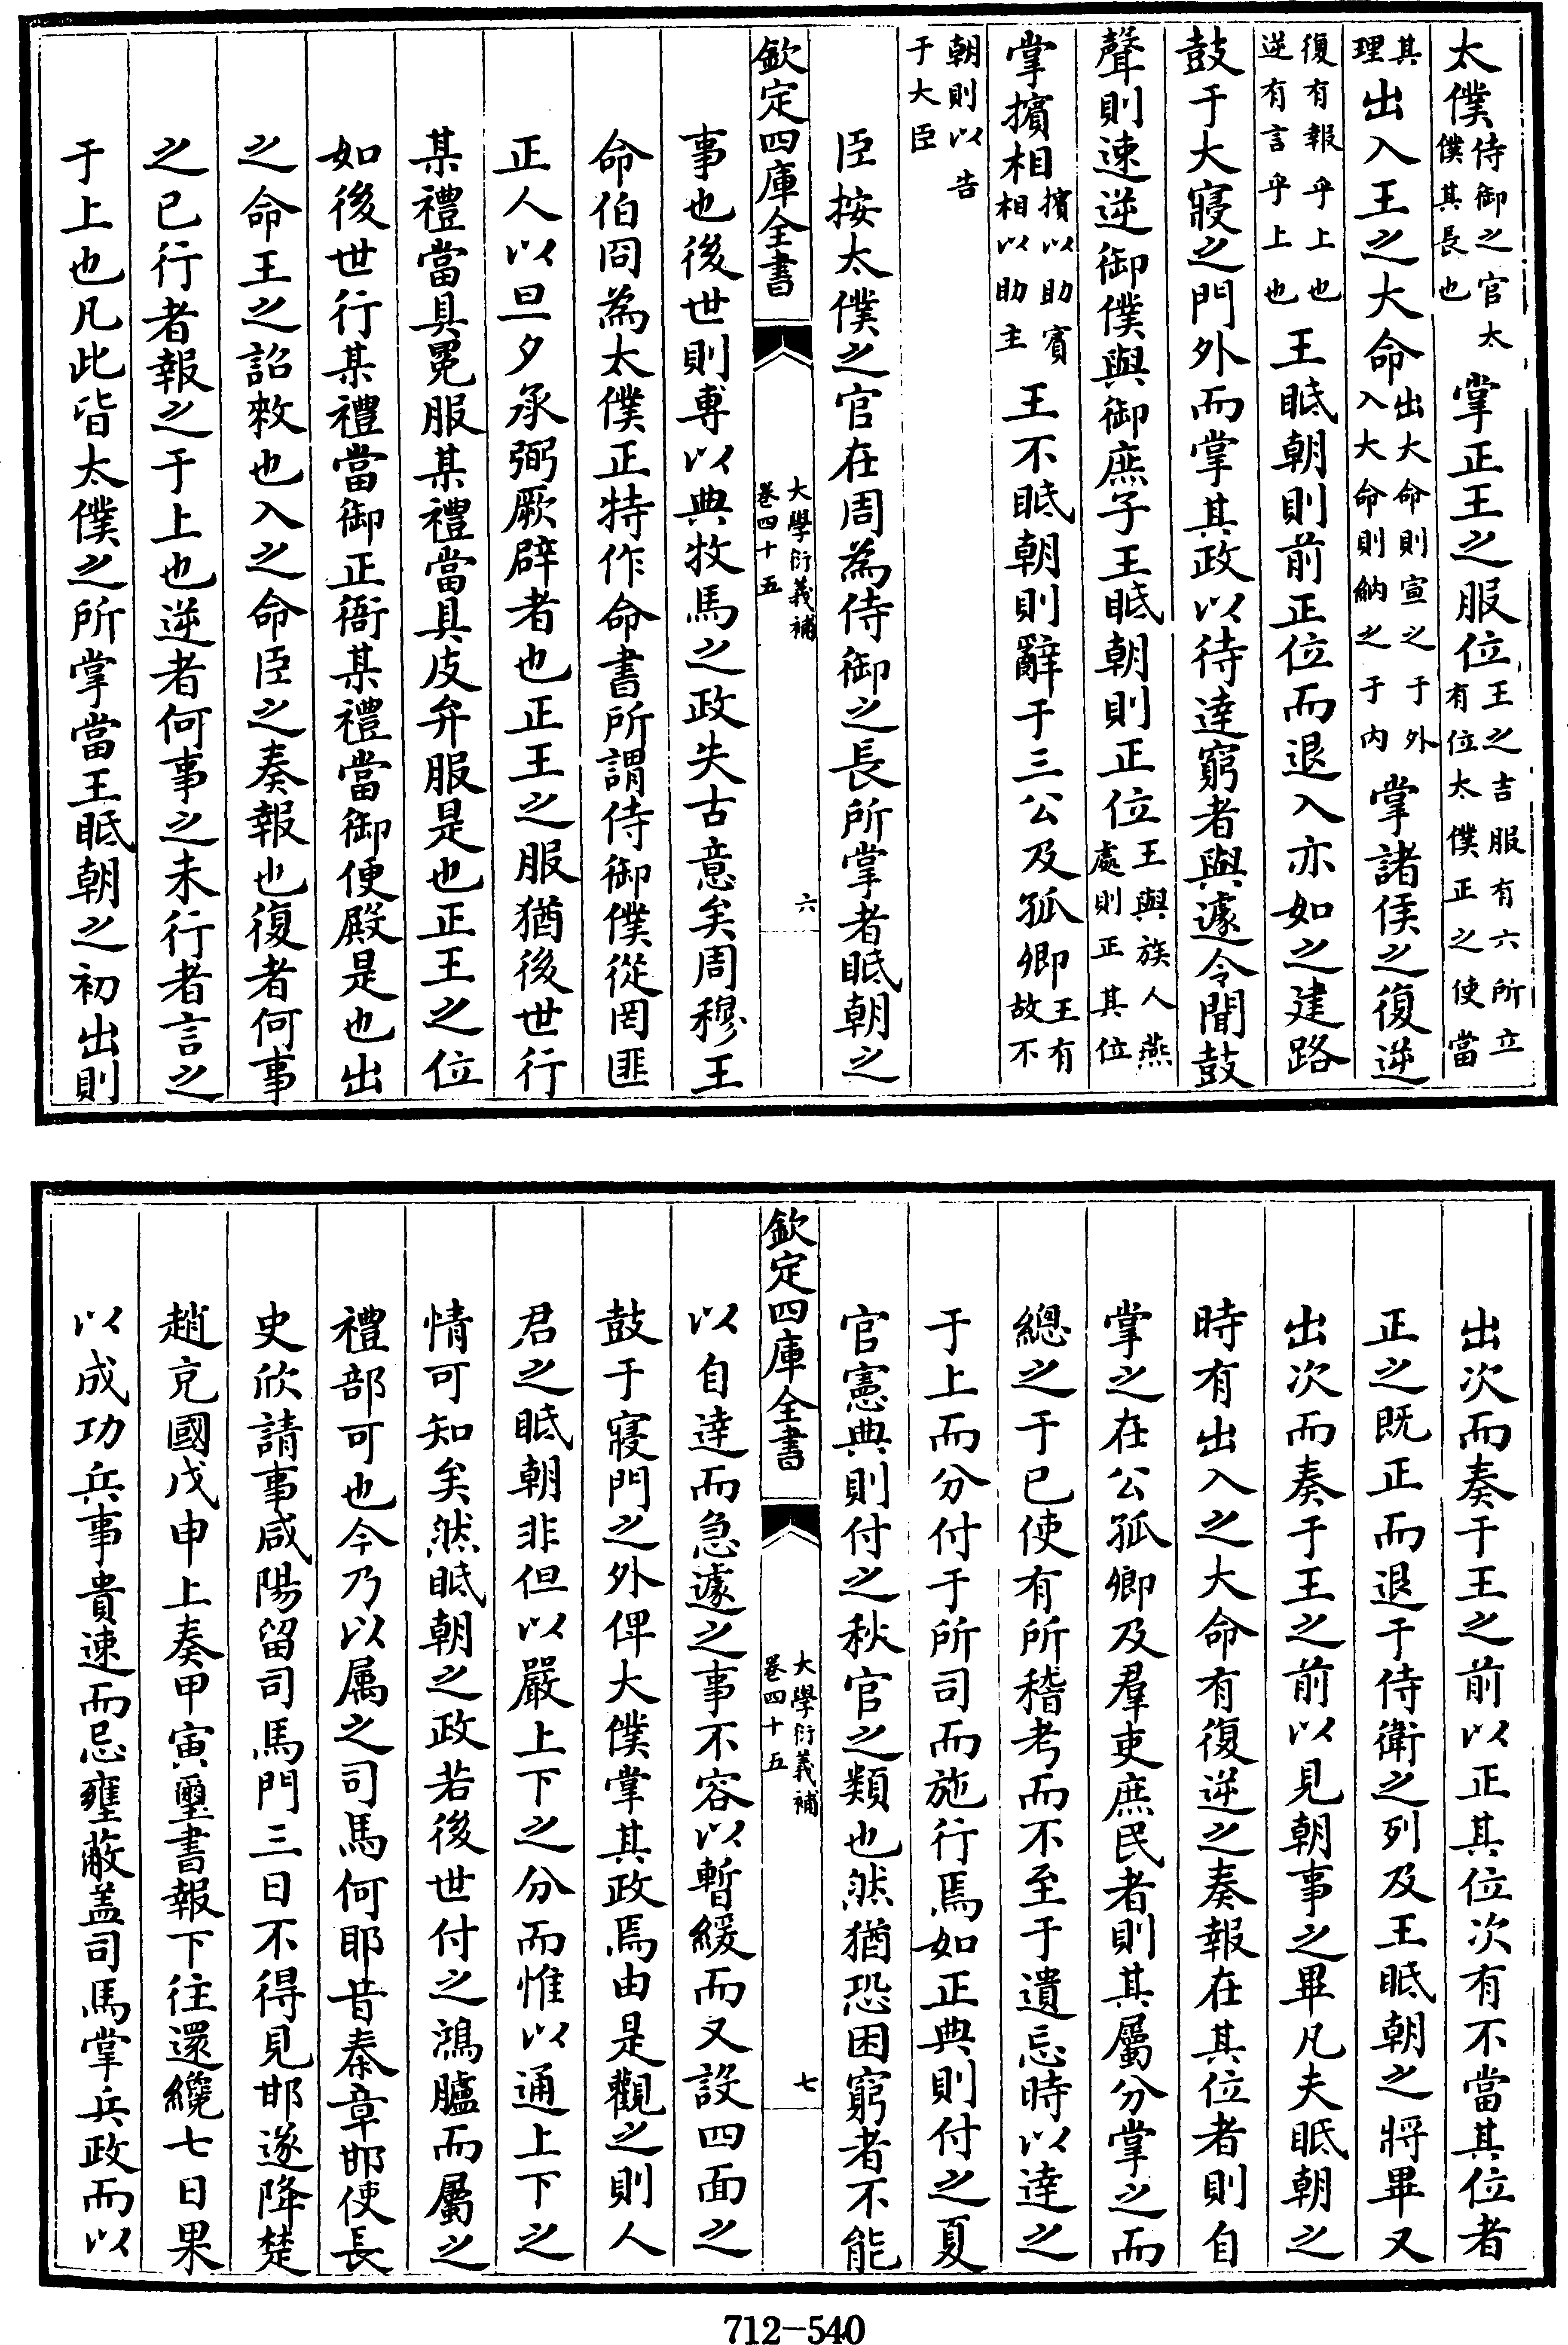 太僕侍御之官太僕其長也掌正王之服位王之吉服有六所立有位太僕正之使當
其理出入王之大命出大命則宣之于外入大命則納之于内掌諸侯之復逆
復有報乎上也逆有言乎上也王眡朝則前正位而退入亦如之建路
鼓于大寢之門外而掌其政以待達窮者與遽令聞鼓
聲則速逆御僕與御庶子王眡朝則正位王與族人燕處則正其位
掌擯相擯以助賓相以助主王不眡朝則辭于三公及孤卿王有故不
朝則以告于大臣
臣按太僕之官在周為侍御之長所掌者眡朝之
欽定四庫全書
大學衍義補
卷四十五
六
事也後世則專以典牧馬之政失古意矣周穆王
命伯冏為太僕正特作命書所謂侍御僕從罔匪
正人以旦夕承弼厥辟者也正王之服猶後世行
某禮當具冕服某禮當具皮弁服是也正王之位
如後世行某禮當御正衙某禮當御便殿是也出
之命王之詔敕也入之命臣之奏報也復者何事
之已行者報之于上也逆者何事之未行者言之
于上也凡此皆太僕之所掌當王眡朝之初出則
出次而奏于王之前以正其位次有不當其位者
正之既正而退于侍衛之列及王眡朝之將畢又
出次而奏于王之前以見朝事之畢凡夫眡朝之
時有出入之大命有復逆之奏報在其位者則自
掌之在公孤卿及羣吏庶民者則其屬分掌之而
總之于已使有所稽考而不至于遺忘時以達之
于上而分付于所司而施行焉如正典則付之夏
官憲典則付之秋官之類也然猶恐困窮者不能
欽定四庫全書
大學衍義補
卷四十五
七
以自達而急遽之事不容以暫緩而又設四面之
鼓于寢門之外俾大僕掌其政焉由是觀之則人
君之眡朝非但以嚴上下之分而惟以通上下之
情可知矣然眡朝之政若後世付之鴻臚而屬之
禮部可也今乃以属之司馬何耶昔秦章邯使長
史欣請事咸陽留司馬門三日不得見邯遂降楚
趙充國戊申上奏甲寅璽書報下往還纔七日果
以成功兵事貴速而忌壅蔽盖司馬掌兵政而以
712-540